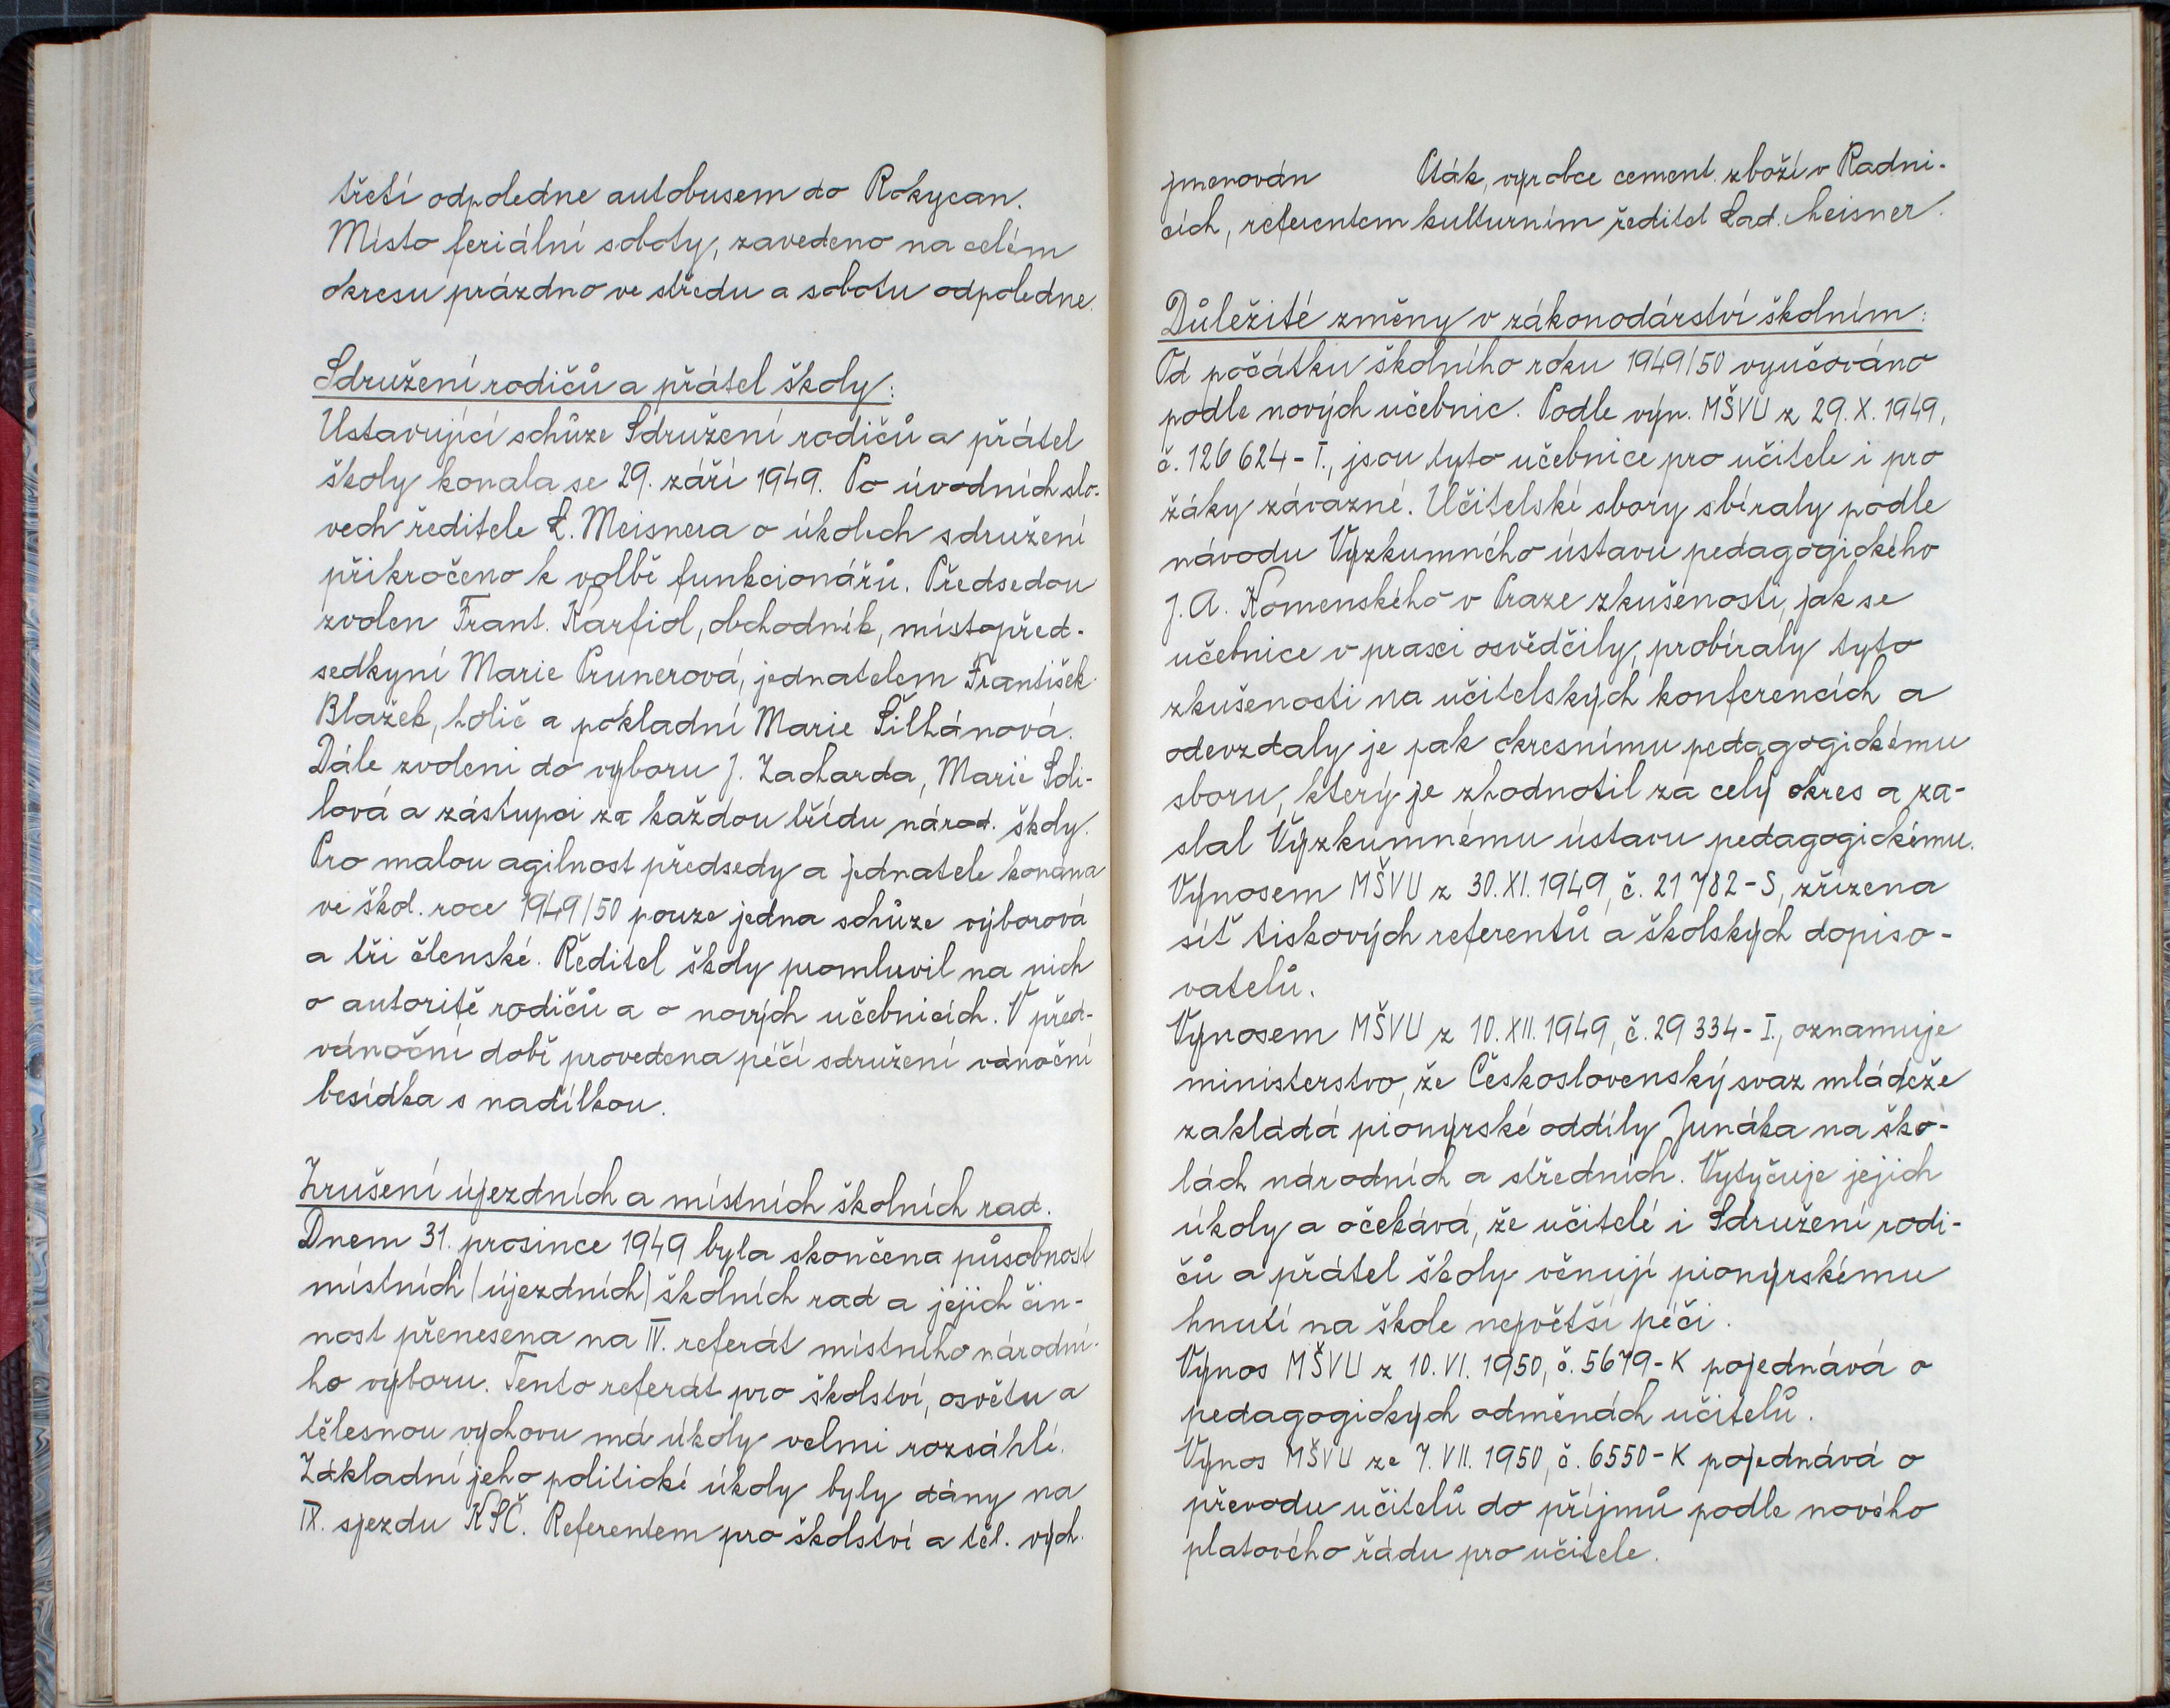 třetí odpoledne autobusem do Rokycan.
Místo feriální soboty, zavedeno na celém
okresu prázdno ve středu a sobotu odpoledne.
Sdružení rodičů a přátel školy:
Ustavující schůze Sdružení rodičů a přátel
školy konala se 29. září 1949. Po úvodních slo-
vech ředitele L. Meisnera o úkolech sdružení
přikročeno k volbě funkcionářů. Předsedou
zvolen Frant. Karfiol, obchodník, místopřed-
sedkyní Marie Prunerová, jednatelem František
Blažek, holič a pokladní Marie Šilhánová.
Dále zvoleni do výboru J. Zacharda, Marie Sdi-
lová a zástupci za každou třídu národ. školy.
Pro malou agilnost předsedy a jednatele konána
ve škol. roce 1949/50 pouze jedna schůze výborová
a tři členské. Ředitel školy promluvil na nich
o autoritě rodičů a o nových učebnicích. V před-
vánoční době provedena péčí sdružení vánoční
besídka s nadílkou.
Zrušení újezdních a místních školních rad.
Dnem 31. prosince 1949 byla skončena působnost
místních /újezdních/ školních rad a jejich čin-
nost přenesena na IV. referát místního národní-
ho výboru. Tento referát pro školství, osvětu a
tělesnou výchovu má úkoly velmi rozsáhlé.
Základní jeho politické úkoly byly dány na
IX. sjezdu KSČ. Referentem pro školství a těl. vých.
jmenován Pták, výrobce cement. zboží v Radni-
cích, referentem kulturním ředitel Lad. Meisner.
Důležité změny v zákonodárství školním:
Od počátku školního roku 1949/50 vyučováno
podle nových učebnic. Podle výn. MŠVU z 29. X. 1949,
č. 126 624 - I., jsou tyto učebnice pro učitele i pro
žáky závazné. Učitelské sbory sbíraly podle
návodu Výzkumného ústavu pedagogického
J. A. Komenského v Praze zkušenosti, jak se
učebnice v praxi osvědčily, probíraly tyto
zkušenosti na učitelských konferencích a
odevzdaly je pak okresnímu pedagogickému
sboru, který je zhodnotil za celý okres a za-
slal Výzkumnému ústavu pedagogickému.
Výnosem MŠVU z 30. XI. 1949, č. 21 782 - S, zřízena
síť tiskových referentů a školských dopiso-
vatelů.
Výnosem MŠVU z 10. XII. 1949, č. 29 334 - I., oznamuje
ministerstvo, že Československý svaz mládeže
zakládá pionýrské oddíly Junáka na ško-
lách národních a středních. Vytyčuje jejich
úkoly a očekává, že učitelé i Sdružení rodi-
čů a přátel školy věnují pionýrskému
hnutí na škole největší péči.
Výnos MŠVU z 10. VI. 1950, č. 5679 - K pojednává o
pedagogických odměnách učitelů.
Výnos MŠVU ze 7. VII. 1950, č. 6550 - K pojednává o
převodu učitelů do příjmů podle nového
platového řádu pro učitele.